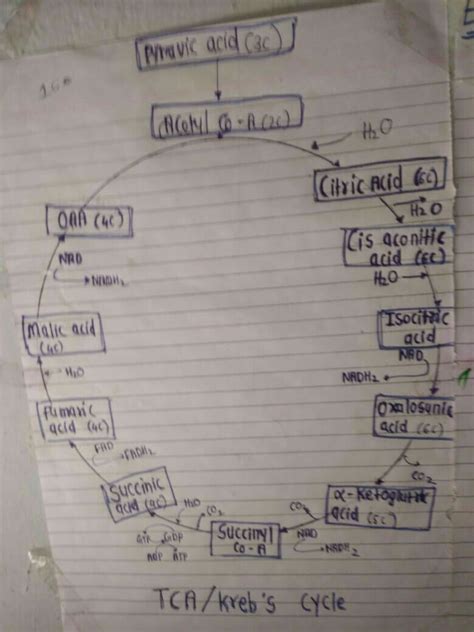 Pyruvic acid (3C)
Acetyl Co-A (2C)
H2O
Citric Acid (6C)
H2O
Cis aconitic
acid (6C)
H2O
Isocitric
acid
NAD
NADH2
Oxalosunic
acid (6C)
CO2
α-Ketogluteric
acid (5C)
CO2
NAD
NADH2
Succinyl
Co-A
CO2
H2O
GTP GDP
ADP ATP
Succinic
acid (4C)
FAD
FADH2
Fumaric
acid (4C)
H2O
Malic acid
(4C)
NAD
NADH2
OAA (4C)
TCA/Kreb's cycle